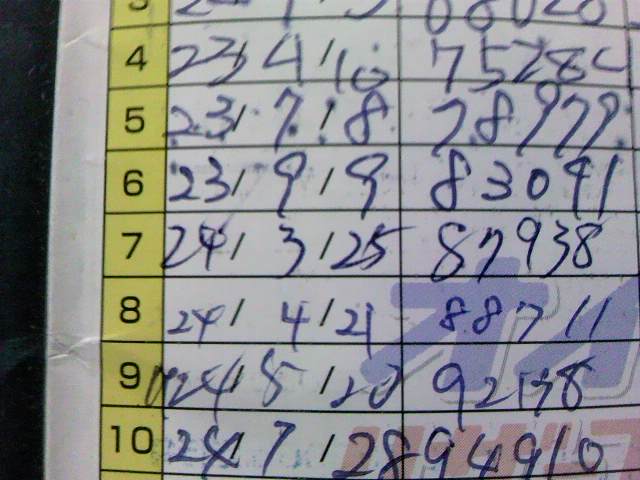 4 23/4/10 7528
5 23/7/8 78979
6 23/9/9 83091
7 24/3/25 87938
8 24/4/21 88711
9 24/5/20 92138
10 24/7/28 94910
オイ